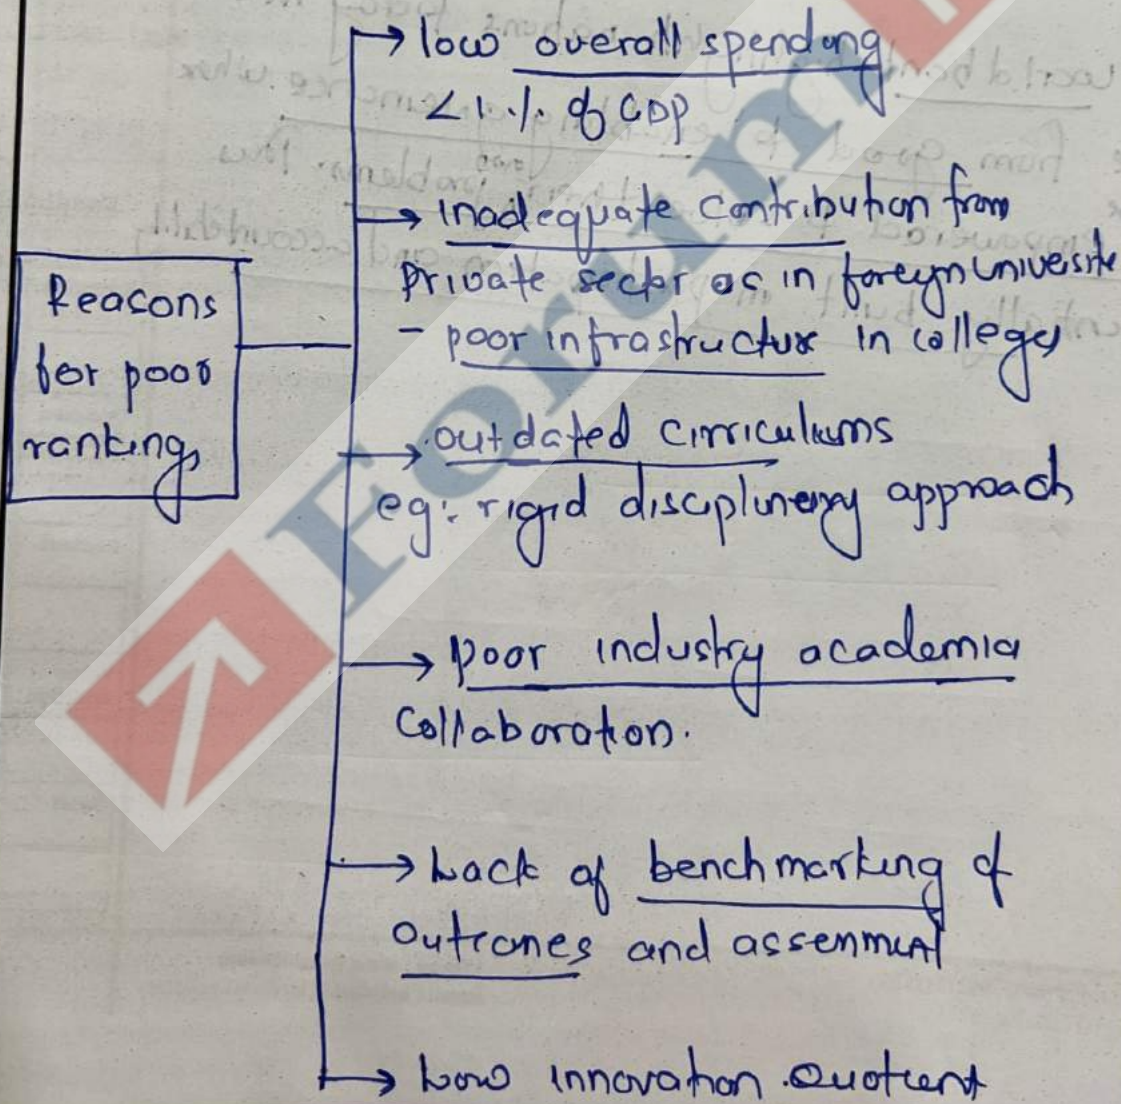 Reasons
for poor
ranking
→ low overall spending
<1% of GDP
→ inadequate contribution from
private sector as in foreign universite
- poor infrastructure in colleges
→ outdated cirriculums
eg: rigid disciplinary approach
→ poor industry academia
collaboration.
→ Lack of benchmarking of
outcomes and assessment
→ Low innovation Quotient
Forum